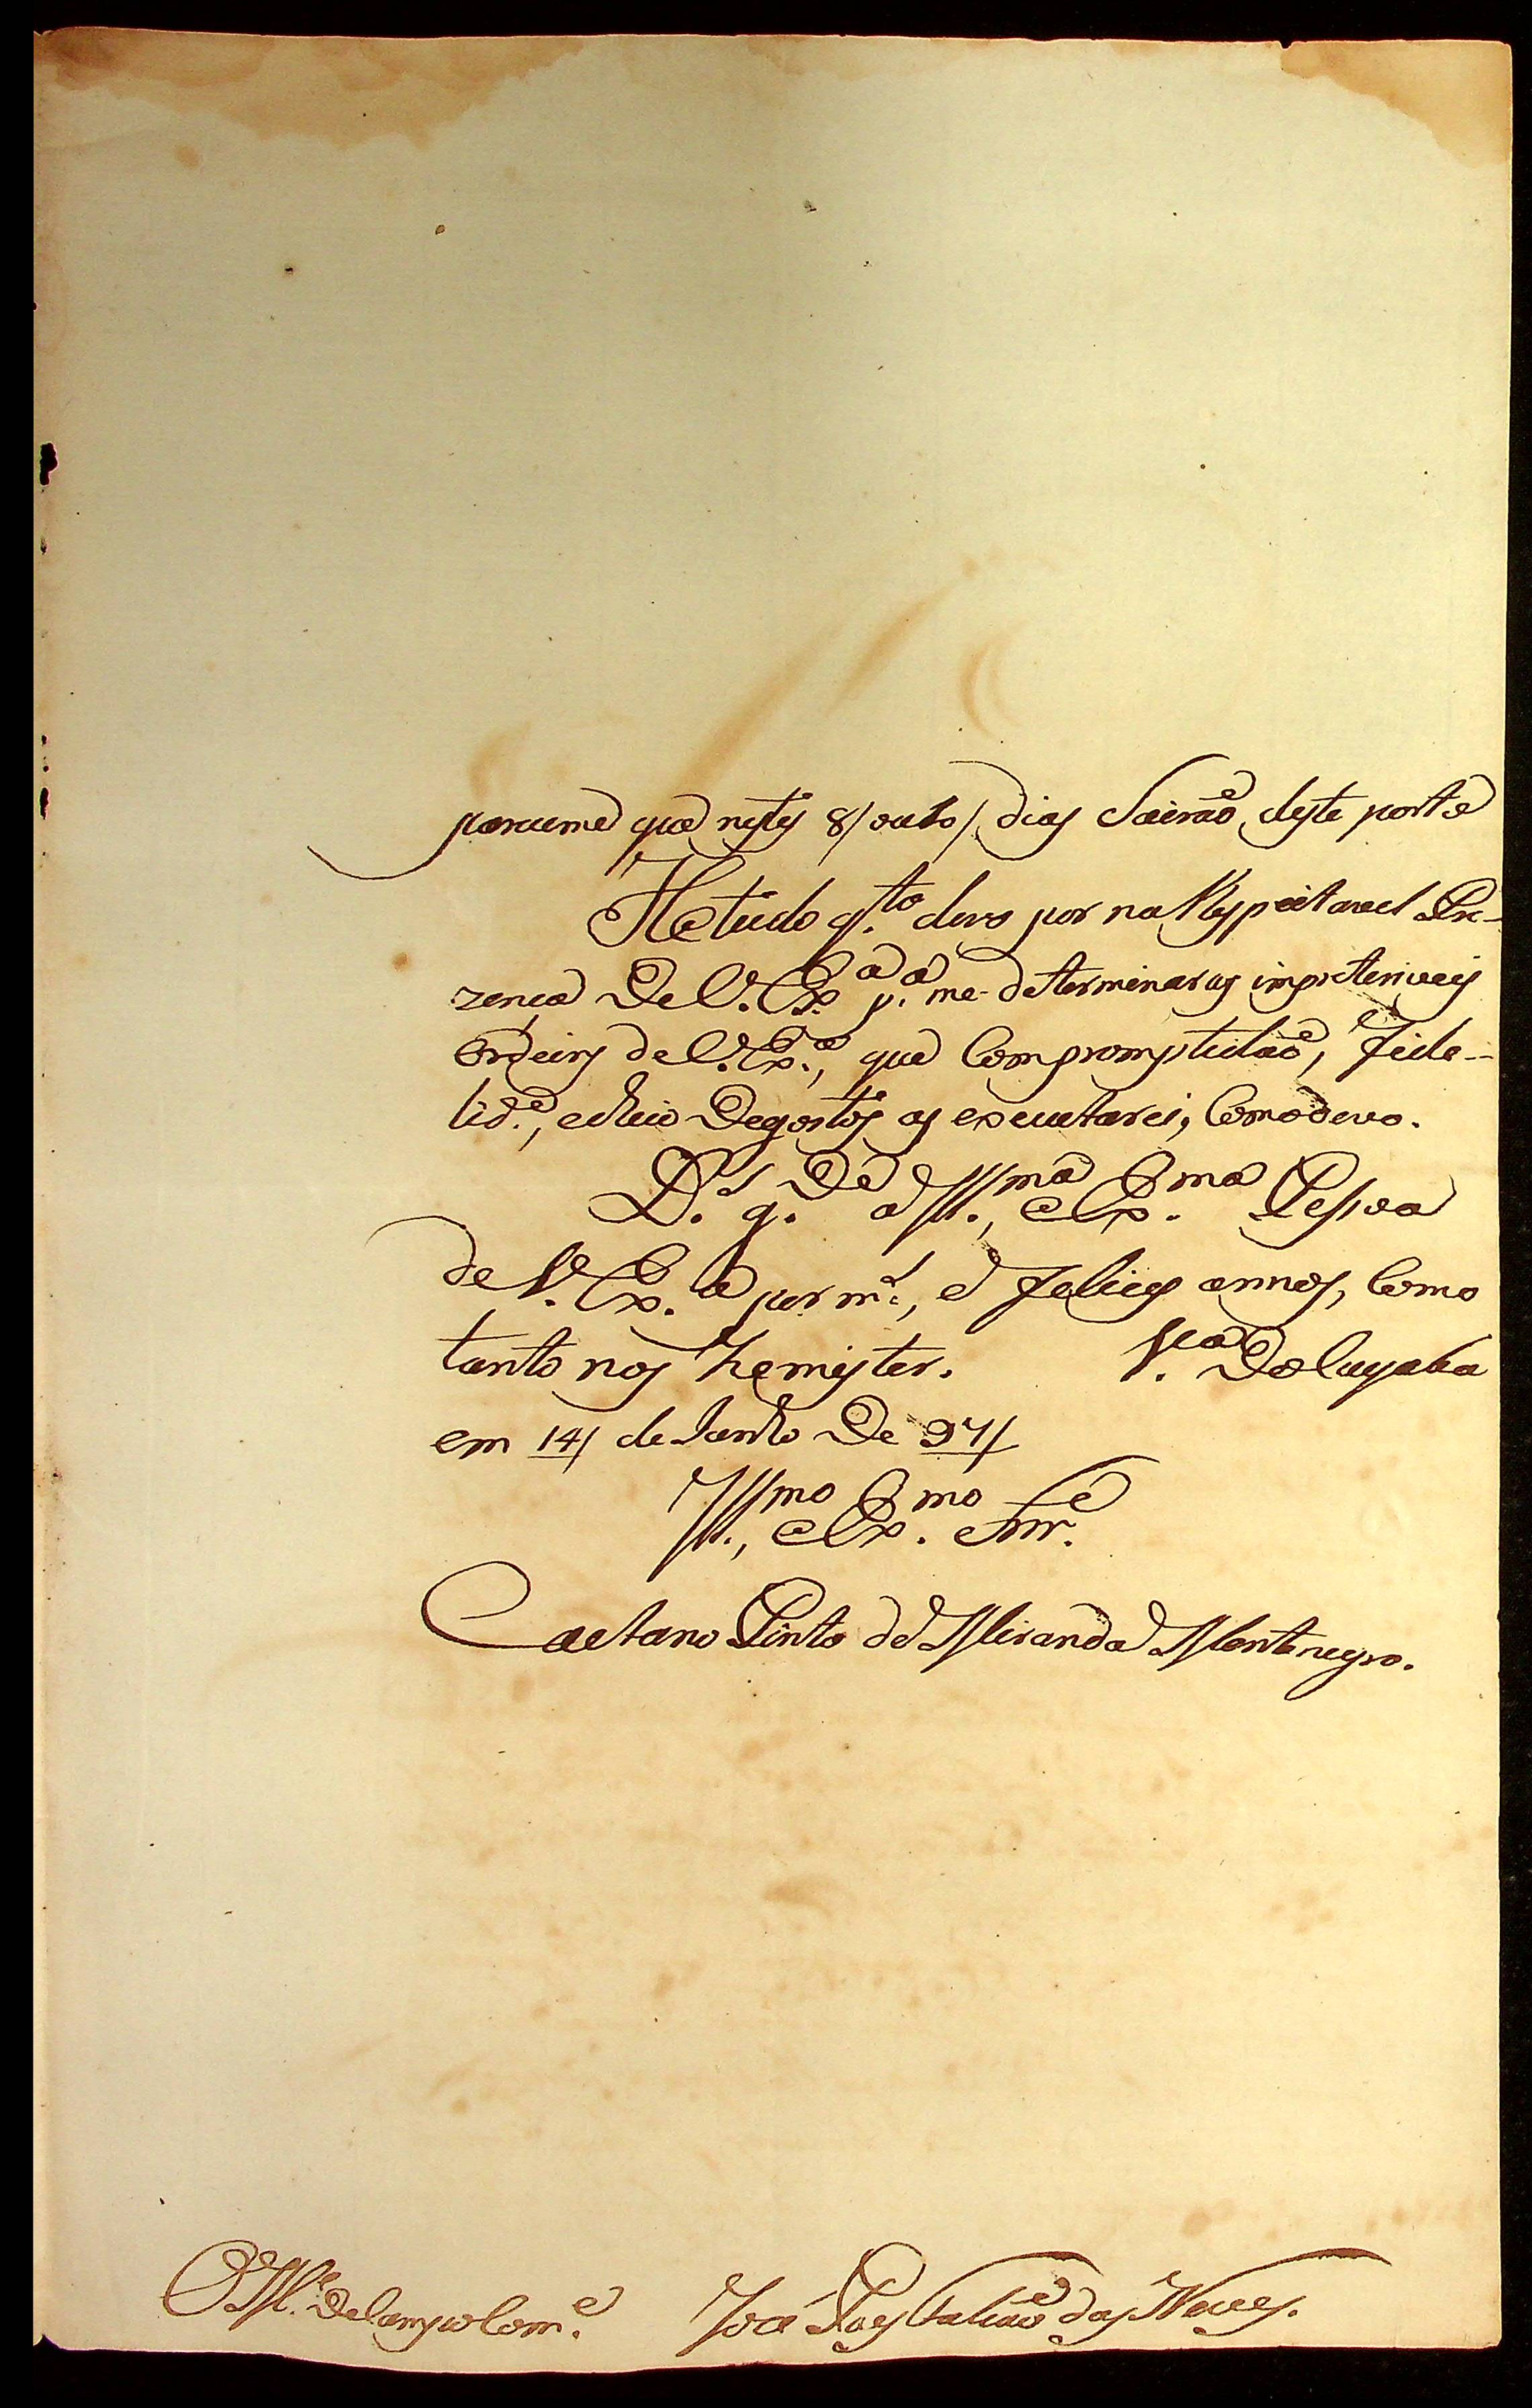 pareceme que nestes 8/outo/ dias Sairaõ deste porto
He tudo q.to devo por na Respeitavel Pre-
zença De V. Ex.a p.a me determinar as impreteriveis
Ordeins de V. Ex.a, que Com promptidaõ, Fide-
lid.e, e cheio De gostos as executarei, Como devo.
D.s g.De a Ill.ma, e Ex.ma Pessoa
de V. Ex.a por m.s, e Felices annos, Como
tanto nos he mister. V.a Do Cuyaba
em 14/ de Junho De 97/
Ill.mo, e Ex.mo Snr.
Caetano Pinto de Miranda Montenegro.
O M.e De Campo Com.e José Paes Falcaõ das Neves.